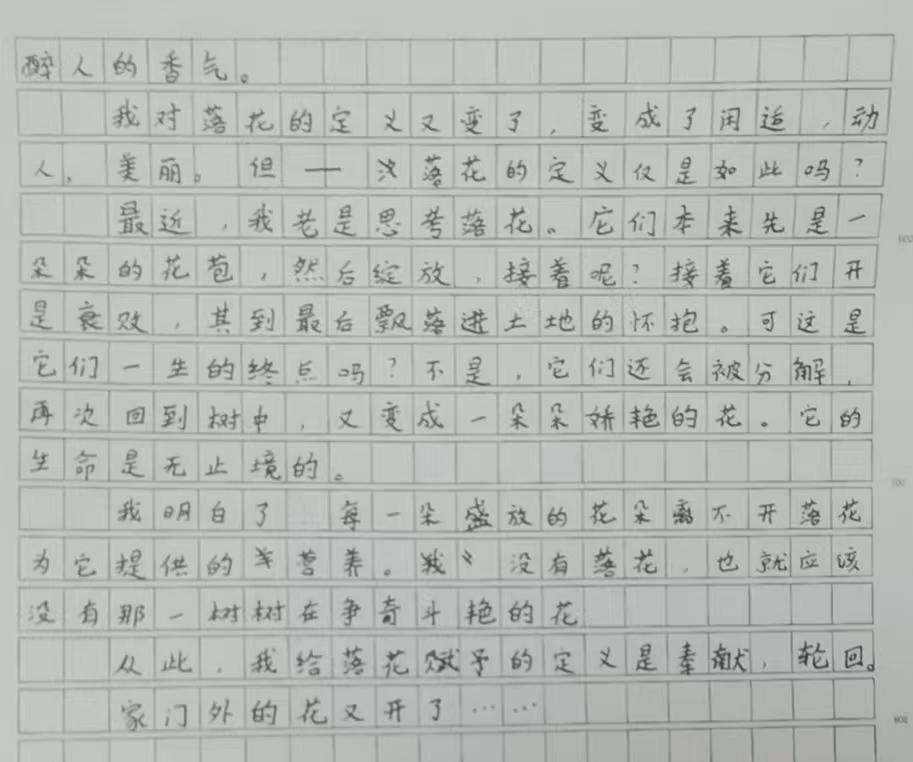 醉人的香气。
我对落花的定义又变了，变成了闲适，动
人，美丽。但——落花的定义仅是如此吗？
最近，我老是思考落花。它们本来先是一
朵朵的花苞，然后绽放，接着呢？接着它们开
是衰败，其到最后飘落进土地的怀抱。可这是
它们一生的终点吗？不是，它们还会被分解，
再次回到树中，又变成一朵朵娇艳的花。它的
生命是无止境的。
我明白了 每一朵盛放的花朵离不开落花
为它提供的营养。没有落花，也就应该
没有那一树树在争奇斗艳的花
从此，我给落花赋予的定义是奉献，轮回。
家门外的花又开了……
600
700
800